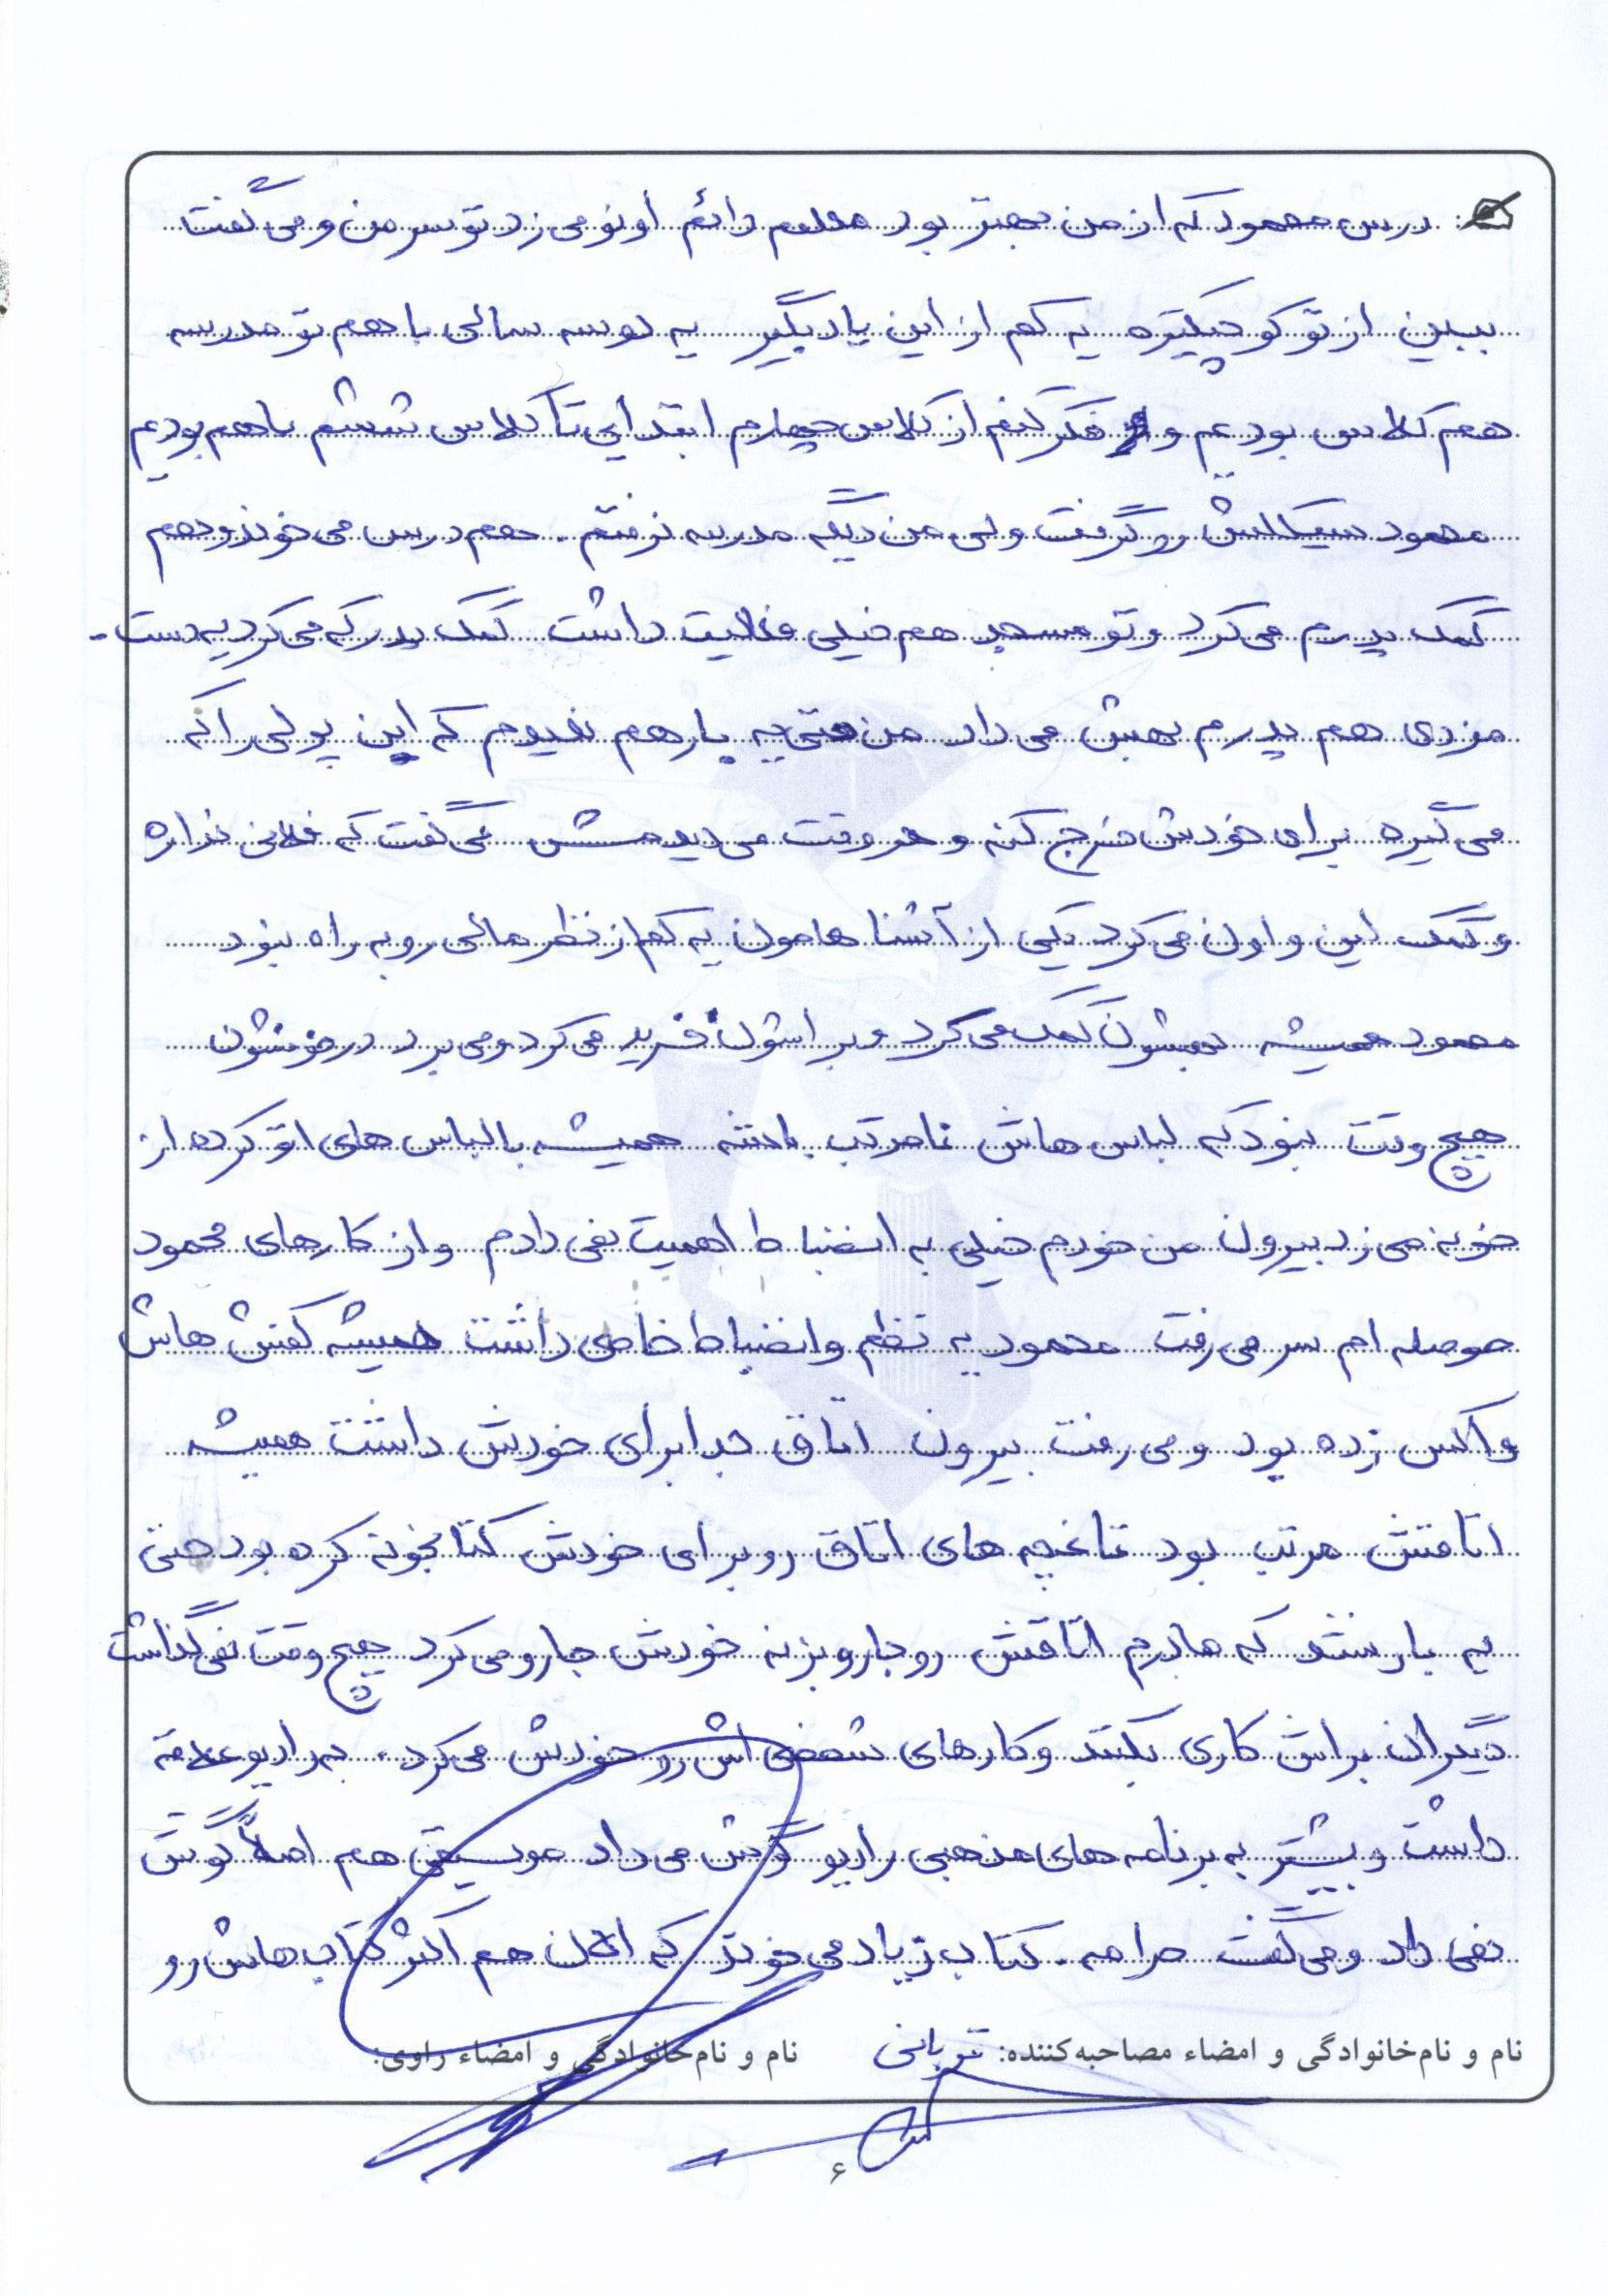 درس محمود که از من بهتر بود معلم دائم اونو می زد تو سر من و می گفت
ببین از تو کوچیکتره یه کم از این یاد بگیر یه دو سه سالی با هم تو مدرسه
هم کلاس بودیم و فکر کنم از کلاس چهارم ابتدایی تا کلاس ششم با هم بودیم
محمود سیکلش رو گرفت ولی من دیگه مدرسه نرفتم. هم درس می خوند و هم
کمک پدرم می کرد و تو مسجد هم خیلی فعالیت داشت کمک پدر که می کرد یه دست-
مزدی هم پدرم بهش می داد من حتی یه بار هم ندیدم که این پولی را که
می گیره برای خودش خرج کنه و هر وقت می دیدمش می گفت که فلانی نداره
و کمک این و اون می کرد یکی از آشناهامون یه کم از نظر مالی رو به راه نبود
محمود همیشه بهشون کمک می کرد و براشون خرید می کرد و می برد در خونشون
هیچ وقت نبود که لباس هاش نامرتب باشه همیشه با لباس های اتو کرده از
خونه می زد بیرون من خودم خیلی به انضباط اهمیت نمی دادم و از کارهای محمود
حوصله ام سر می رفت محمود یه نظم و انضباط خاصی داشت همیشه کفش هاش
واکس زده بود و می رفت بیرون اتاق جدا برای خودش داشت همیشه
اتاقش مرتب بود تاغچه های اتاق رو برای خودش کتابخونه کرده بود حتی
یه بار نشد که مادرم اتاقش رو جارو بزنه خودش جارو می کرد هیچ وقت نمی گذاشت
دیگران براش کاری بکنند و کارهای شخصی اش رو خودش می کرد. به رادیو علاقه
داشت و بیشتر به برنامه های مذهبی رادیو گوش می داد موسیقی هم اصلاً گوش
نمی داد و می گفت حرامه. کتاب زیاد می خوند که الان هم اکثر کتاب هاش رو
نام و نام‌خانوادگی و امضاء مصاحبه‌کننده: قربانی نام و نام‌خانوادگی و امضاء راوی:
۶